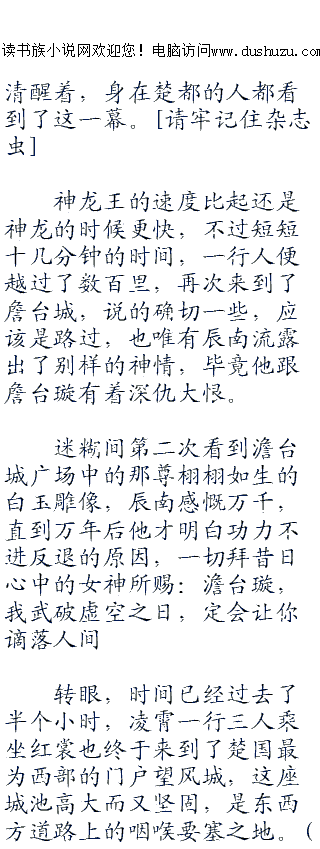 读书族小说网欢迎您！电脑访问www.dushuzu.com
清醒着，身在楚都的人都看
到了这一幕。[请牢记住杂志
虫]
神龙王的速度比起还是
神龙的时候更快，不过短短
十几分钟的时间，一行人便
越过了数百里，再次来到了
詹台城，说的确切一些，应
该是路过，也唯有辰南流露
出了别样的神情，毕竟他跟
詹台璇有着深仇大恨。
迷糊间第二次看到澹台
城广场中的那尊栩栩如生的
白玉雕像，辰南感慨万千，
直到万年后他才明白功力不
进反退的原因，一切拜昔日
心中的女神所赐：澹台璇，
我武破虚空之日，定会让你
谪落人间
转眼，时间已经过去了
半个小时，凌霄一行三人乘
坐红裳也终于来到了楚国最
为西部的门户望风城，这座
城池高大而又坚固，是东西
方道路上的咽喉要塞之地。(